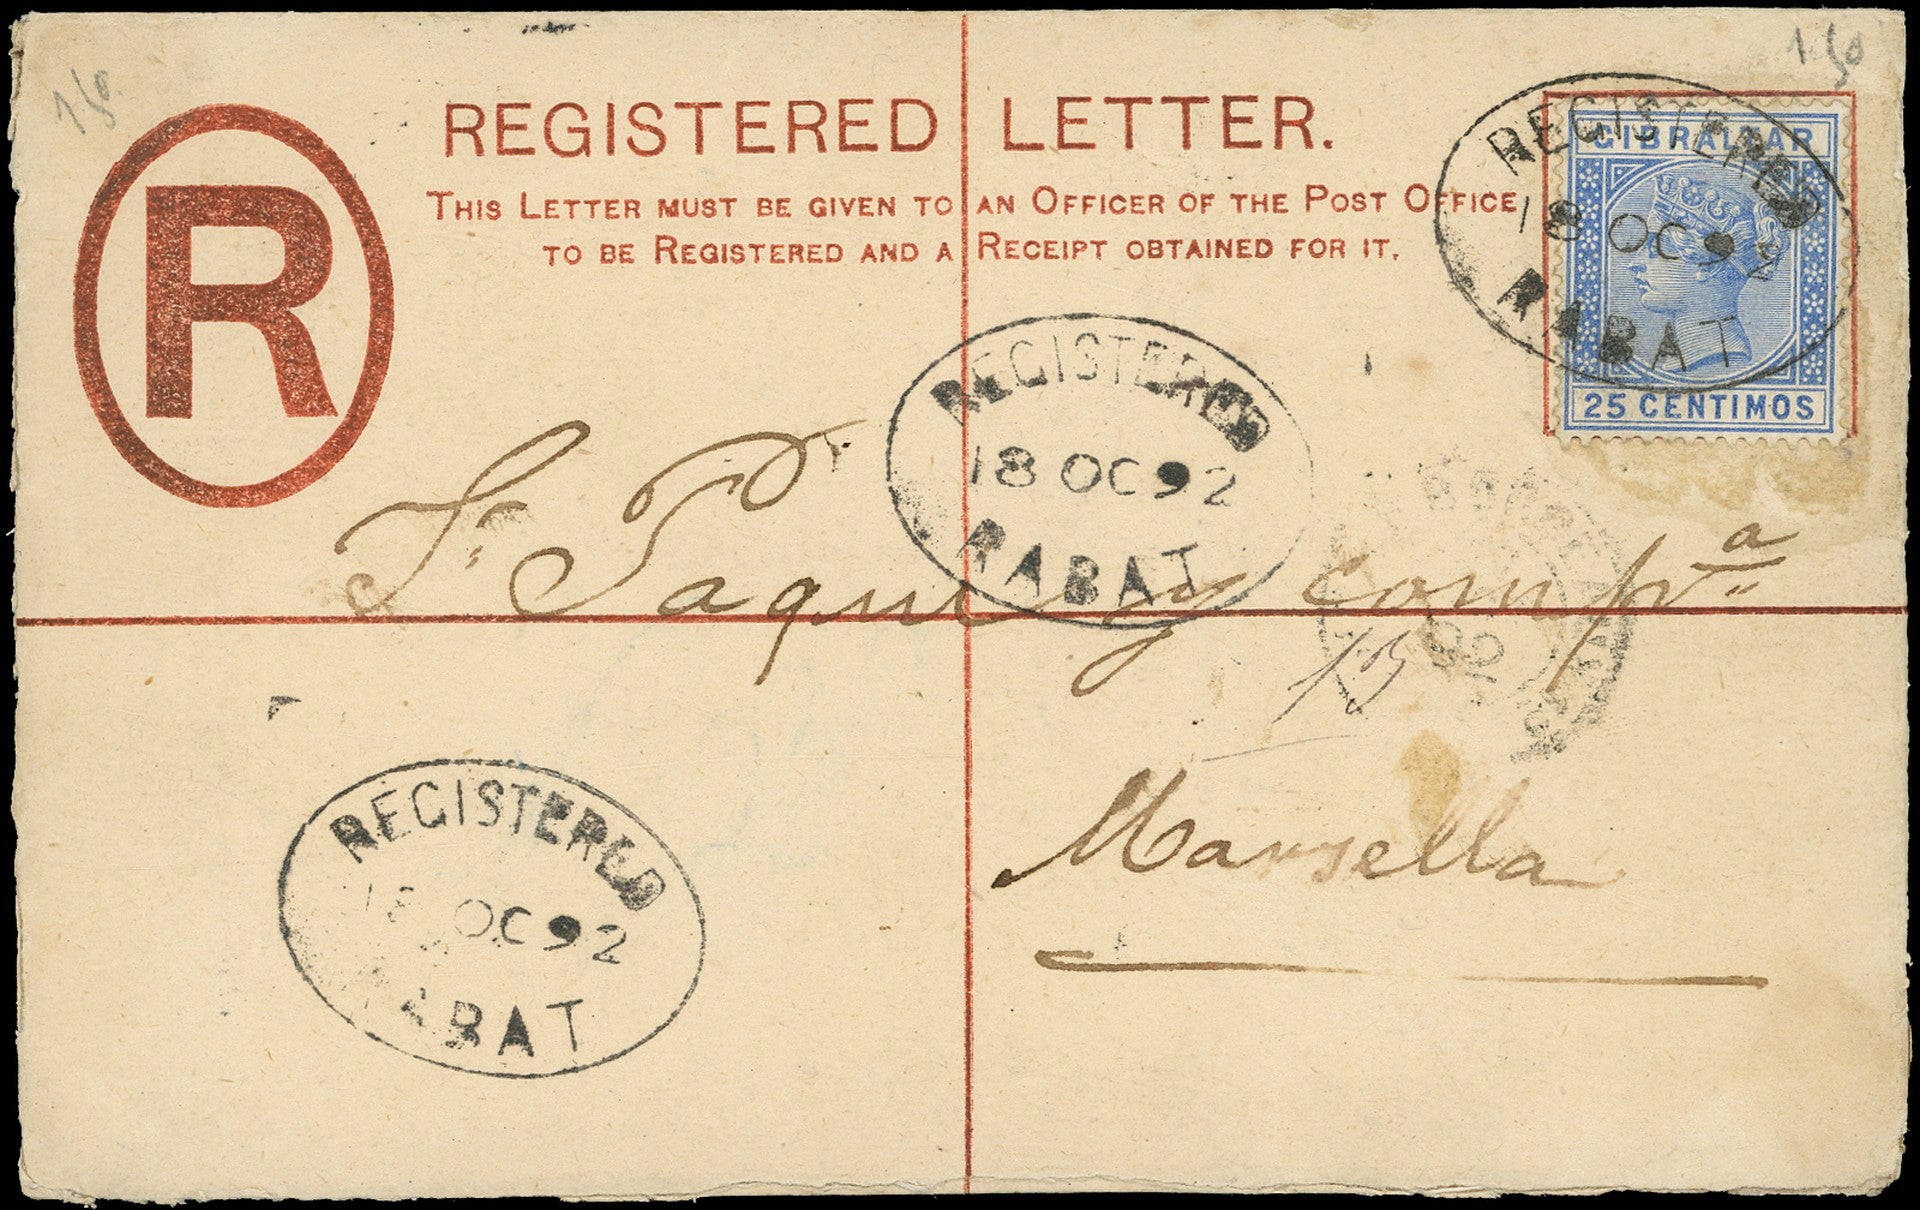 REGISTERED LETTER.
THIS LETTER MUST BE GIVEN TO AN OFFICER OF THE POST OFFICE
TO BE REGISTERED AND A RECEIPT OBTAINED FOR IT.
R
GIBRALTAR
25 CENTIMOS
REGISTERED
18 OC 92
RABAT
REGISTERED
18 OC 92
RABAT
Paquey compª
Marsella
REGISTERED
18 OC 92
RABAT